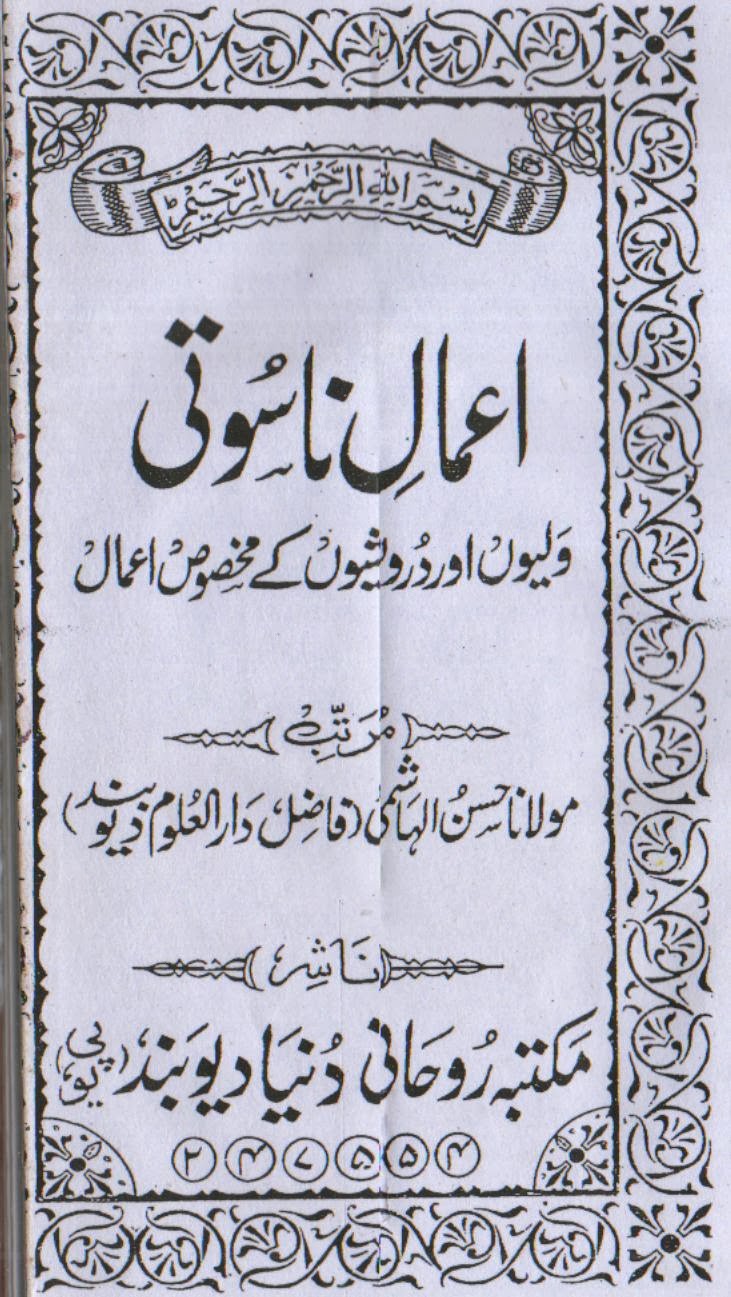 بِسْمِ اللهِ الرَّحْمٰنِ الرَّحِيْمِ
اعمالِ ناسُوتی
ولیوں اور درویشوں کے مخصوص اعمال
مُرَتِّب
مولانا حسنُ الہاشمی (فاضل دارالعلوم دیوبند)
ناشر
مکتبہ رُوحانی دُنیا دیوبند (یوپی)
۲۴۷۵۵۴